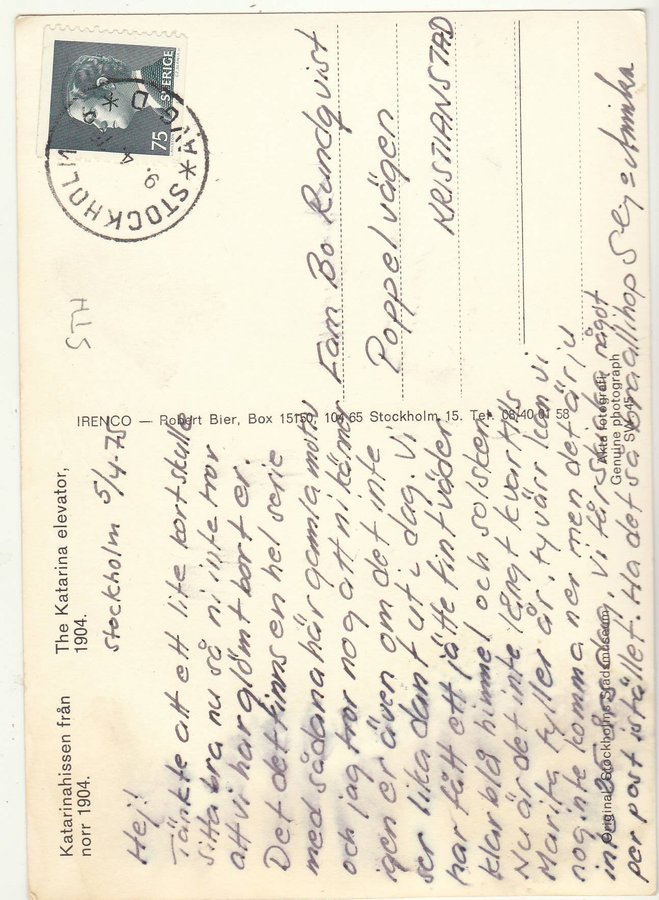 Katarinahissen från
norr 1904.
The Katarina elevator,
1904.
Stockholm 5/4-75
Hej!
Tänkte att ett lite kort skulle
sitta bra nu så ni inte tror
att vi har glömt bort er.
Det det finns en hel serie
med sådana här gamla motiv
och jag tror nog att ni känner
igen er även om det inte
ser likadant ut i dag. Vi
har fått ett jätte fint väder
klarblå himmel och solsken.
Nu är det inte långt kvar tills
Marita fyller år, tyvärr kan vi
nog inte komma ner men det är ju
inte, vi får skicka något
per post istället. Ha det så bra allihop
Annika
IRENCO — Robert Bier, Box 15150, 104 65 Stockholm 15. Tel. 08/40 01 58
Original: Stockholms Stadsmuseum
Äkta fotografi
Genuine photograph
STH
SVERIGE
75
STOCKHOLM
Fam Bo Rundqvist
Poppelvägen
KRISTIANSTAD